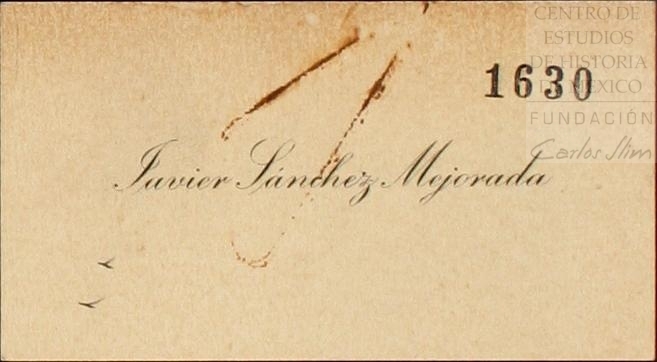 CENTRO DE
ESTUDIOS
DE HISTORIA
DE MEXICO
FUNDACIÓN
Carlos Slim
1630
Javier Sánchez Mejorada